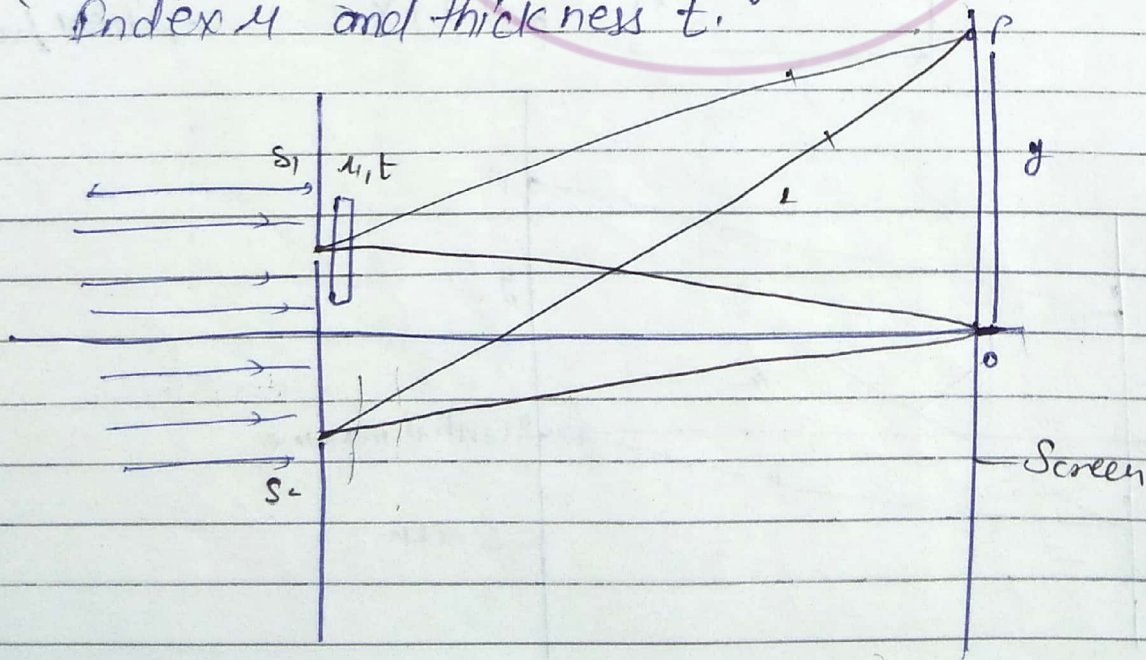 Index μ and thickness t.
P
S₁ μ, t
y
1
2
O
Screen
S₂